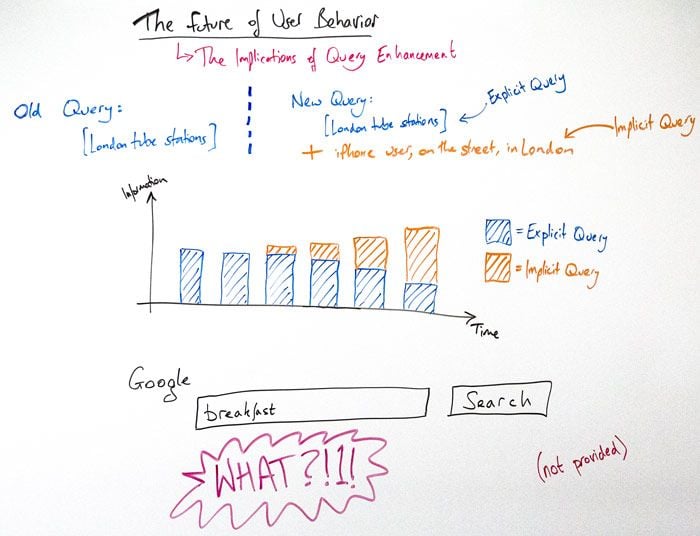 The Future of User Behavior
↳ The Implications of Query Enhancement
Old Query:
[London tube stations]
New Query:
[London tube stations]
Explicit Query
+ iphone user, on the street, in London
Implicit Query
Information
= Explicit Query
= Implicit Query
Time
Google
breakfast
Search
WHAT?!1!
(not provided)